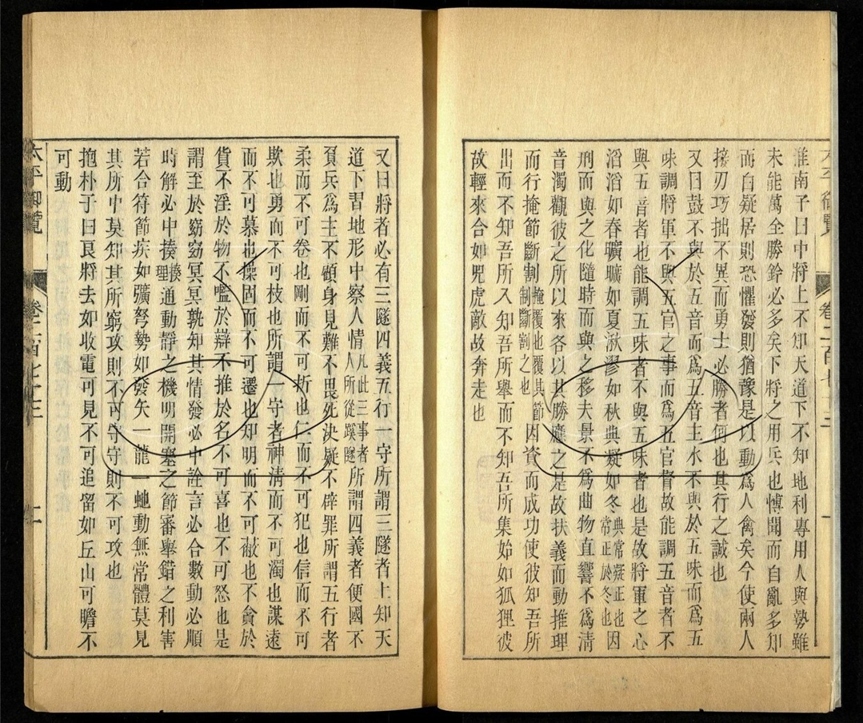 太平御覽 卷二百七十三
淮南子曰中將上不知天道下不知地利專用人與勢雖
未能萬全勝鈐必多矣下將之用兵也愽聞而自亂多知
而自疑居則恐懼發則猶豫是以動爲人禽矣今使兩人
接刃巧拙不異而勇士必勝者何也其行之誠也
又曰鼓不與於五音而爲五音主水不與於五味而爲五
味調將軍不與五官之事而爲五官督故能調五音者不
與五音者也能調五味者不與五味者也是故將軍之心
滔滔如春曠曠如夏湫漻如秋典凝如冬典常凝正也常正於冬也因
刑而與之化隨時而與之移夫景不爲曲物直響不爲清
音濁觀彼之所以來各以其勝應之是故扶義而動推理
而行掩節斷割掩覆也覆其節制斷割之也因資而成功使彼知吾所
出而不知吾所入知吾所舉而不知吾所集始如狐狸彼
故輕來合如兕虎敵故奔走也
又曰將者必有三隧四義五行一守所謂三隧者上知天
道下習地形中察人情凡此三事者人所從蹊隧所謂四義者便國不
負兵爲主不顧身見難不畏死決疑不辟罪所謂五行者
柔而不可卷也剛而不可折也仁而不可犯也信而不可
欺也勇而不可枝也所謂一守者神清而不可濁也謀遠
而不可慕也操固而不可遷也知明而不可蔽也不貪於
貨不淫於物不嚂於辯不推於名不可喜也不可怒也是
謂至於窈窈冥冥孰知其情發必中詮言必合數動必順
時解必中揍揍理通動靜之機明開塞之節審舉錯之利害
若合符節疾如彍弩勢如發矢一龍一虵動無常體莫見
其所中莫知其所窮攻則不可守守則不可攻也
抱朴子曰良將去如收電可見不可追留如丘山可瞻不
可動
太平御覽 卷二百七十三 二